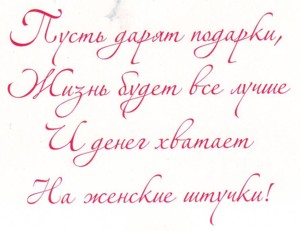 Пусть дарят подарки,
Жизнь будет все лучше
И денег хватает
На женские штучки!